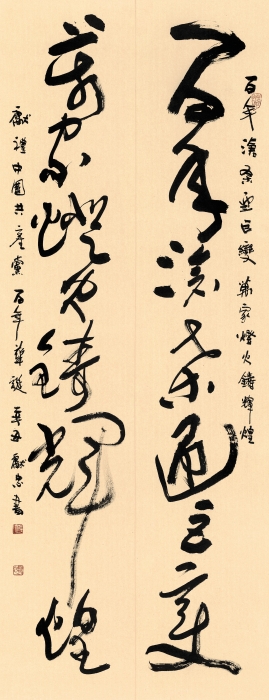 百年滄桑迎巨變 萬家燈火鑄輝煌
百年滄桑迎巨變
萬家燈火鑄輝煌
獻禮中國共產黨百年華誕 辛丑 獻忠書